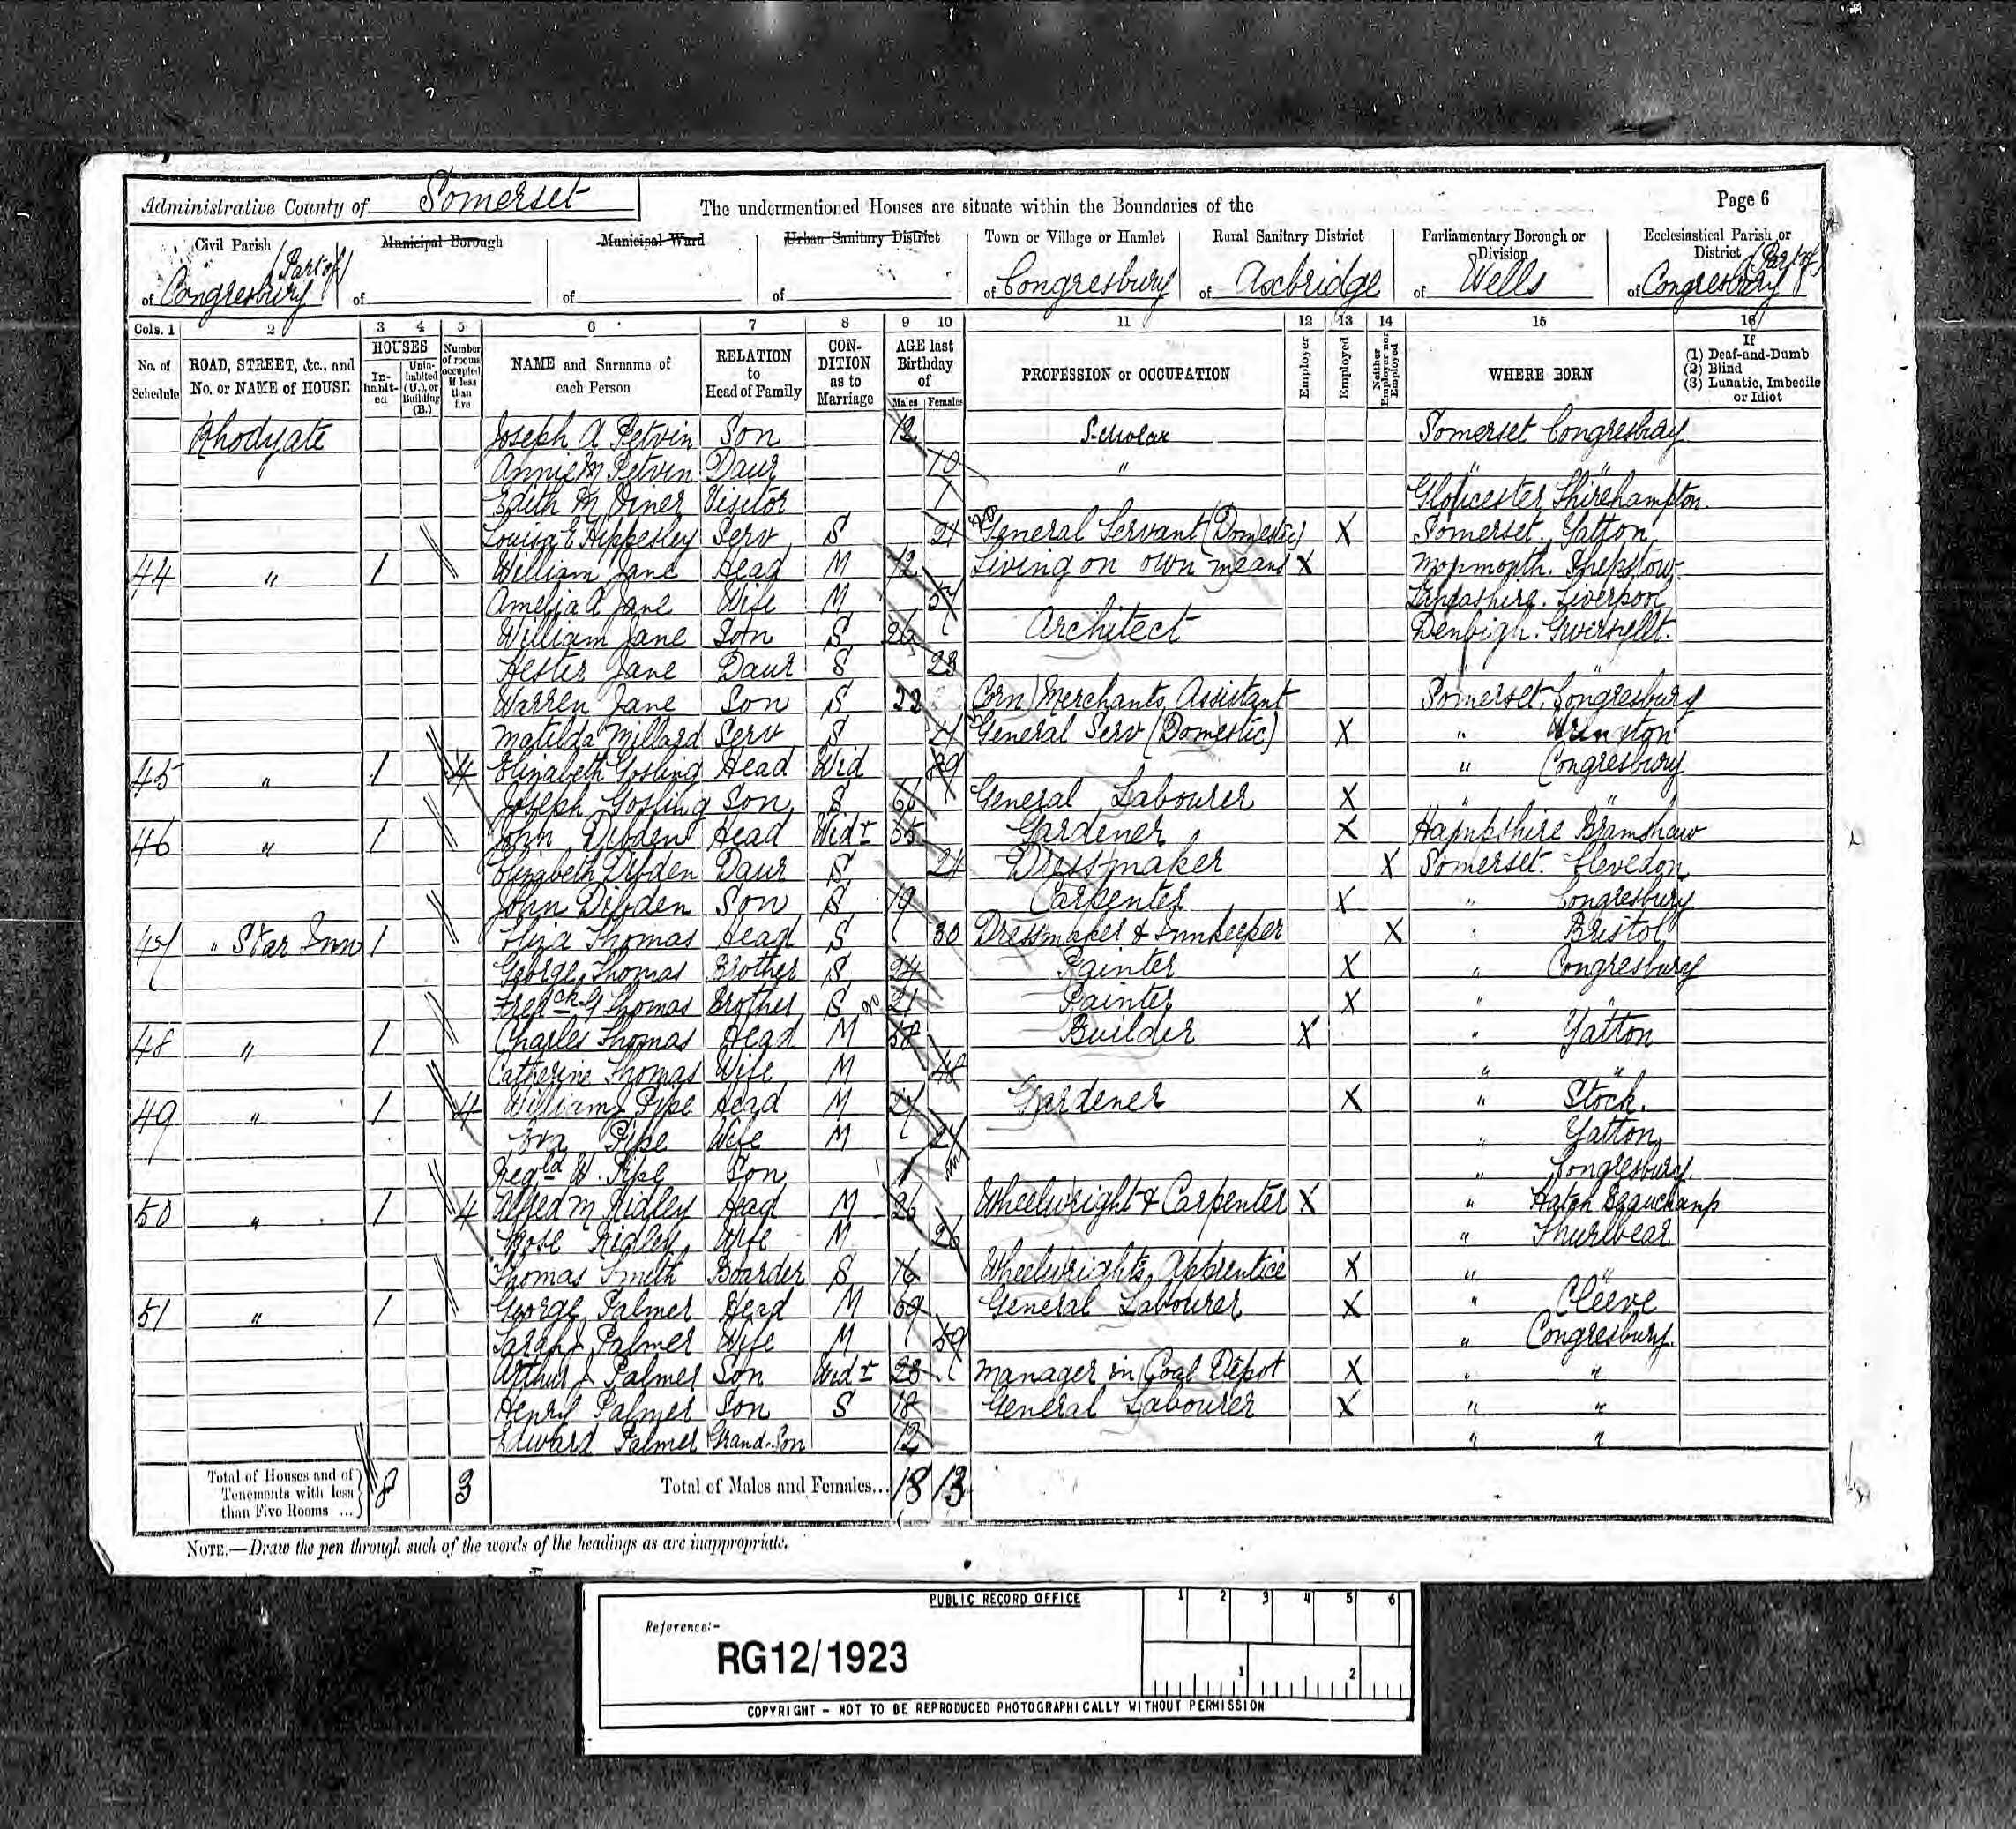 Administrative County of Somerset
The undermentioned Houses are situate within the Boundaries of the
Page 6
Civil Parish (Part of) of Congresbury
Municipal Borough of
Municipal Ward of
Urban Sanitary District of
Town or Village or Hamlet of Congresbury
Rural Sanitary District of Axbridge
Parliamentary Borough or Division of Wells
Ecclesiastical Parish or District (Part of) of Congresbury
Cols. 1 2 3 4 5 6 7 8 9 10 11 12 13 14 15 16
No. of Schedule
ROAD, STREET, &c., and No. or NAME of HOUSE
HOUSES
In-habit-ed
Unin-habited (U.), or Building (B.)
Number of rooms occupied if less than five
NAME and Surname of each Person
RELATION to Head of Family
CON-DITION as to Marriage
AGE last Birthday of
Males Females
PROFESSION or OCCUPATION
Employer
Employed
Neither Employer nor Employed
WHERE BORN
If
(1) Deaf-and-Dumb
(2) Blind
(3) Lunatic, Imbecile or Idiot
Rhodyate Joseph A Petvin Son 12 Scholar Somerset Congresbury
Annie M Petvin Daur 10 " " "
Edith M Viner Visitor 1 Gloucester Shirehampton.
Louisa E Hippesley Serv S 21 General Servant (Domestic) X Somerset. Yatton
44 " 1 William Jane Head M 72 Living on own means X Monmouth. Chepstow.
Amelia A Jane Wife M 57 Lancashire. Liverpool
William Jane Son S 26 Architect Denbigh. Gwersyllt.
Hester Jane Daur S 23 " "
Warren Jane Son S 22 (Corn) Merchants Assistant Somerset. Congresbury
Matilda Millard Serv S General Serv (Domestic) X " Wrington
45 " 1 4 Elizabeth Gosling Head Wid 89 " Congresbury
Joseph Gosling Son S General Labourer X " "
46 " 1 John Dibden Head Widr 55 Gardener X Hampshire Bramshaw
Elizabeth Dibden Daur S 24 Dressmaker X Somerset. Clevedon
John Dibden Son S 19 Carpenter X " Congresbury
47 " Star Inn 1 Eliza Thomas Head S 30 Dressmaker & Innkeeper X " Bristol
George Thomas Brother S 24 Painter X " Congresbury
Fredck G Thomas Brother S 21 Painter X " "
48 " 1 Charles Thomas Head M 58 Builder X " Yatton
Catherine Thomas Wife M 48 " "
49 " 1 4 William J Pipe Head M 27 Gardener X " Stock.
Eva Pipe Wife M 27 " Yatton
Regld W. Pipe Son 1 " Congresbury.
50 " 1 4 Alfred M Ridley Head M 26 Wheelwright & Carpenter X " Hatch Beauchamp
Rose Ridley Wife M 26 " Thurlbear
Thomas Smith Boarder S 16 Wheelwrights Apprentice X " "
51 " 1 George Palmer Head M 69 General Labourer X " Cleeve
Sarah J Palmer Wife M 59 " Congresbury.
Arthur J Palmer Son Widr 28 Manager in Coal Depot X " "
Henry Palmer Son S 18 General Labourer X " "
Edward Palmer Grand-Son 12 " "
Total of Houses and of Tenements with less than Five Rooms ... 8 3
Total of Males and Females... 18 13
NOTE.—Draw the pen through such of the words of the headings as are inappropriate.
PUBLIC RECORD OFFICE
1 2 3 4 5 6
Reference:-
RG12/1923
1 2
COPYRIGHT - NOT TO BE REPRODUCED PHOTOGRAPHICALLY WITHOUT PERMISSION